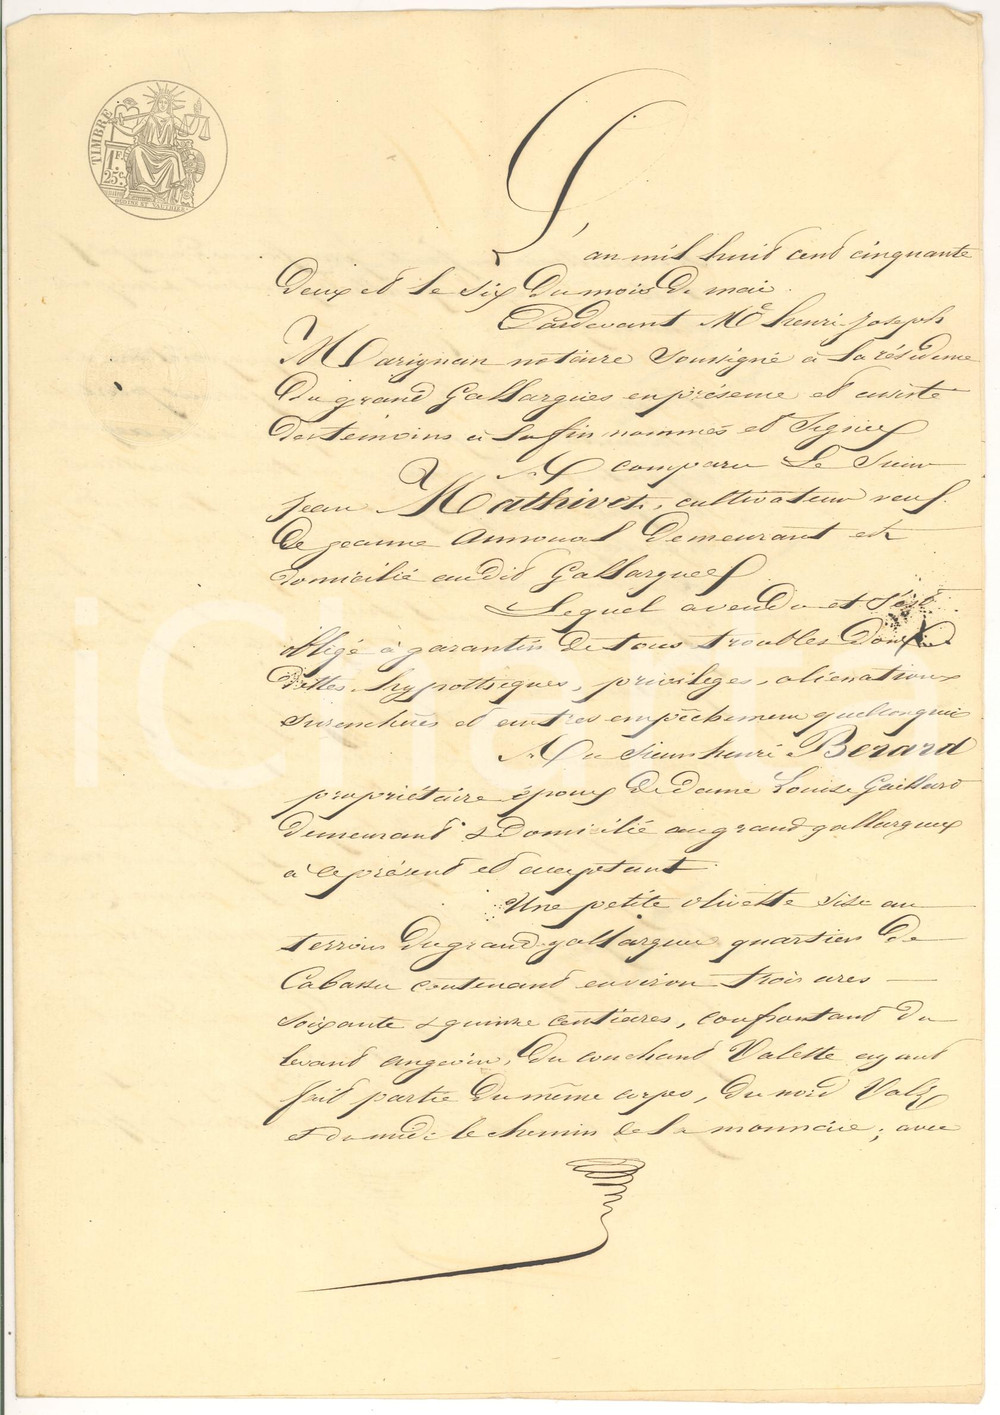 TIMBRE
1F.
25c.
L'an mil huit cent cinquante
deux et le six du mois de mai.
Pardevant Me henri-Joseph
Marignan notaire soussigné à la résidence
du grand Gallargues en présence et assisté
des temoins à la fin nommés et signés
A comparu Le Sieur
jean Mathivet, cultivateur veuf
de jeanne demeurant et
domicilié audit Gallargues
Lequel a vendu et s'est
obligé à garantir de tous troubles
dettes, hypothèques, privilèges, alienations
surenchères et autres empêchemens quelconques
Au Sieur henri Berard
propriétaire époux de dame Louise Gaillard
demeurant & domicilié au grand gallargues
à ce présent et acceptant
Une petite olivette sise au
terroir du grand-gallargues quartier de
Cabassu contenant environ trois ares
soixante & quinze centiares, confrontant du
levant angevin, du couchant Valette ayant
fait partie du même corps, du nord Valz
et du midi le chemin de la monnaie ; avec